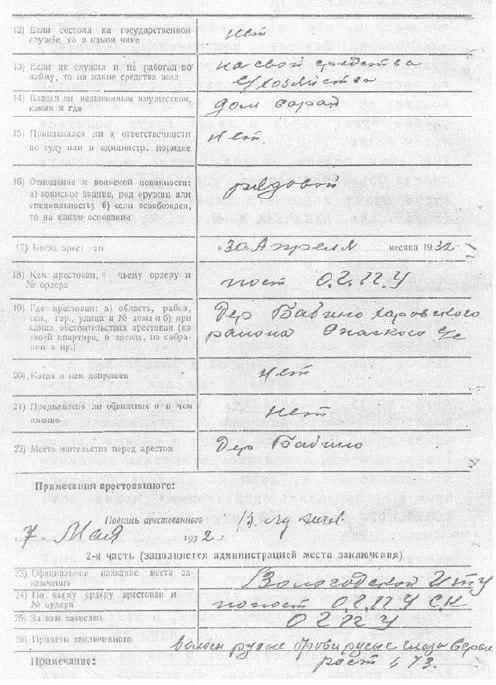 12) Если состоял на государственной
службе, то в каком чине
нет
13) Если не служил и не работал по
найму, то на какие средства жил
на свои средства
с/хозяйства
14) Владел ли недвижимым имуществом,
каким и где
дом сарай
15) Привлекался ли к ответственности
по суду или в администр. порядке
нет
16) Отношение к воинской повинности:
а) воинское звание, род оружия или
специальность; б) если освобожден,
то на каком основании
рядовой
17) Когда арестован
«30 Апреля месяца 1932
18) Кем арестован, по чьему ордеру и
№ ордера
пост О.Г.П.У
19) Где арестован: а) область, район,
сел., гор., улица и № дома и б) при
каких обстоятельствах арестован (на
своей квартире, в засаде, на собра-
нии и пр.)
Дер Бабино Харовского
района с/с
20) Когда и кем допрошен
нет
21) Предъявлено ли обвинение и в чем
именно
нет
22) Место жительства перед арестом
Дер Бабино
Примечания арестованного:
Подпись арестованного
7. Мая 1932 г.
2-я часть (заполняется администрацией места заключения)
23) Официальное название места за-
ключения
Вологодской
24) По чьему ордеру арестован и
№ ордера
О.Г.П.У С.К
25) За кем зачислен
О Г П У
26) Приметы заключенного
волосы русые брови русые глаза серые
рост 173.
Примечание: